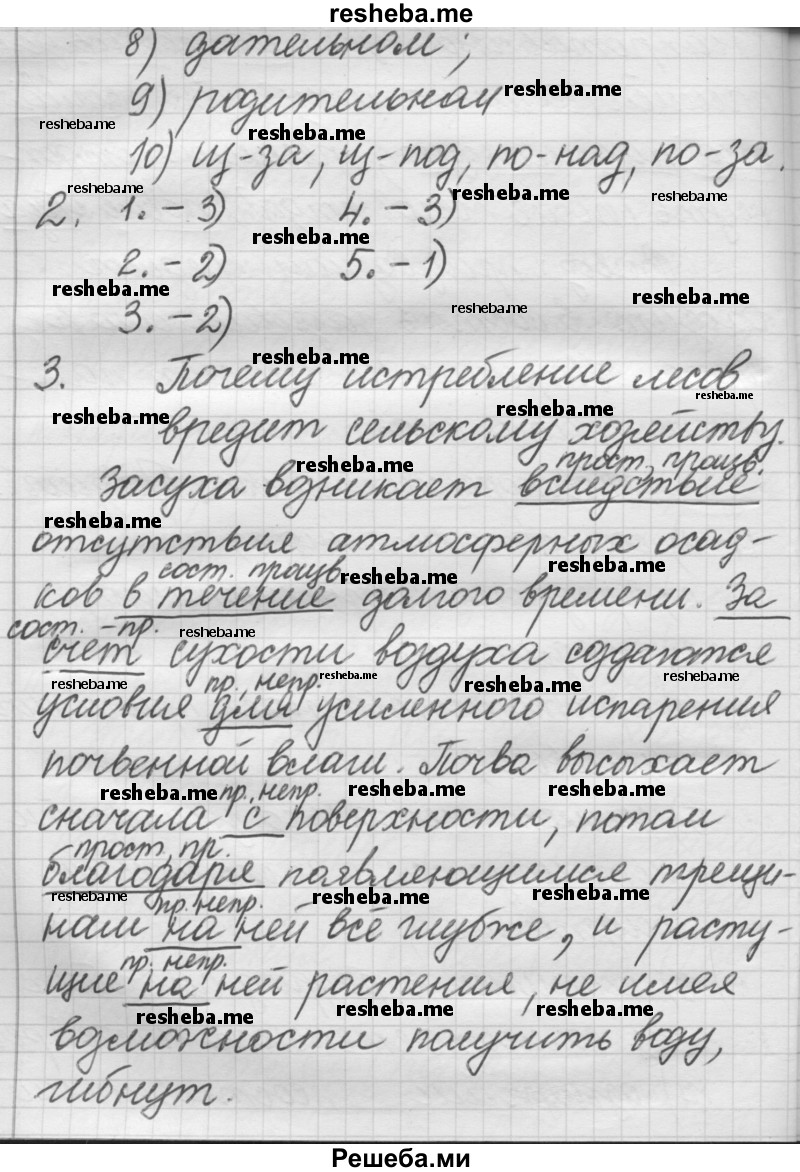 resheba.me
8) дательном;
9) родительном resheba.me
resheba.me resheba.me
10) из-за, из-под, по-над, по-за.
resheba.me resheba.me resheba.me
2. 1. – 3) 4. – 3)
resheba.me
2. – 2) 5. – 1)
resheba.me resheba.me resheba.me
3. – 2)
resheba.me
3. Почему истребление лесов
resheba.me resheba.me resheba.me
вредит сельскому хозяйству.
resheba.me прост, произв.
Засуха возникает вследствие
resheba.me
отсутствия атмосферных осад-
сост. произв. resheba.me resheba.me
ков в течение долгого времени. За
сост. – пр. resheba.me
счёт сухости воздуха создаются
resheba.me пр, непр. resheba.me resheba.me resheba.me
условия для усиленного испарения
почвенной влаги. Почва высыхает
resheba.me пр, непр. resheba.me resheba.me
сначала с поверхности, потом
прост, пр.
благодаря появляющимся трещи-
resheba.me пр. непр. resheba.me resheba.me
нам на ней всё глубже, и расту-
пр. непр.
щие на ней растения, не имея
resheba.me resheba.me resheba.me
возможности получить воду,
гибнут.
Решеба.ми